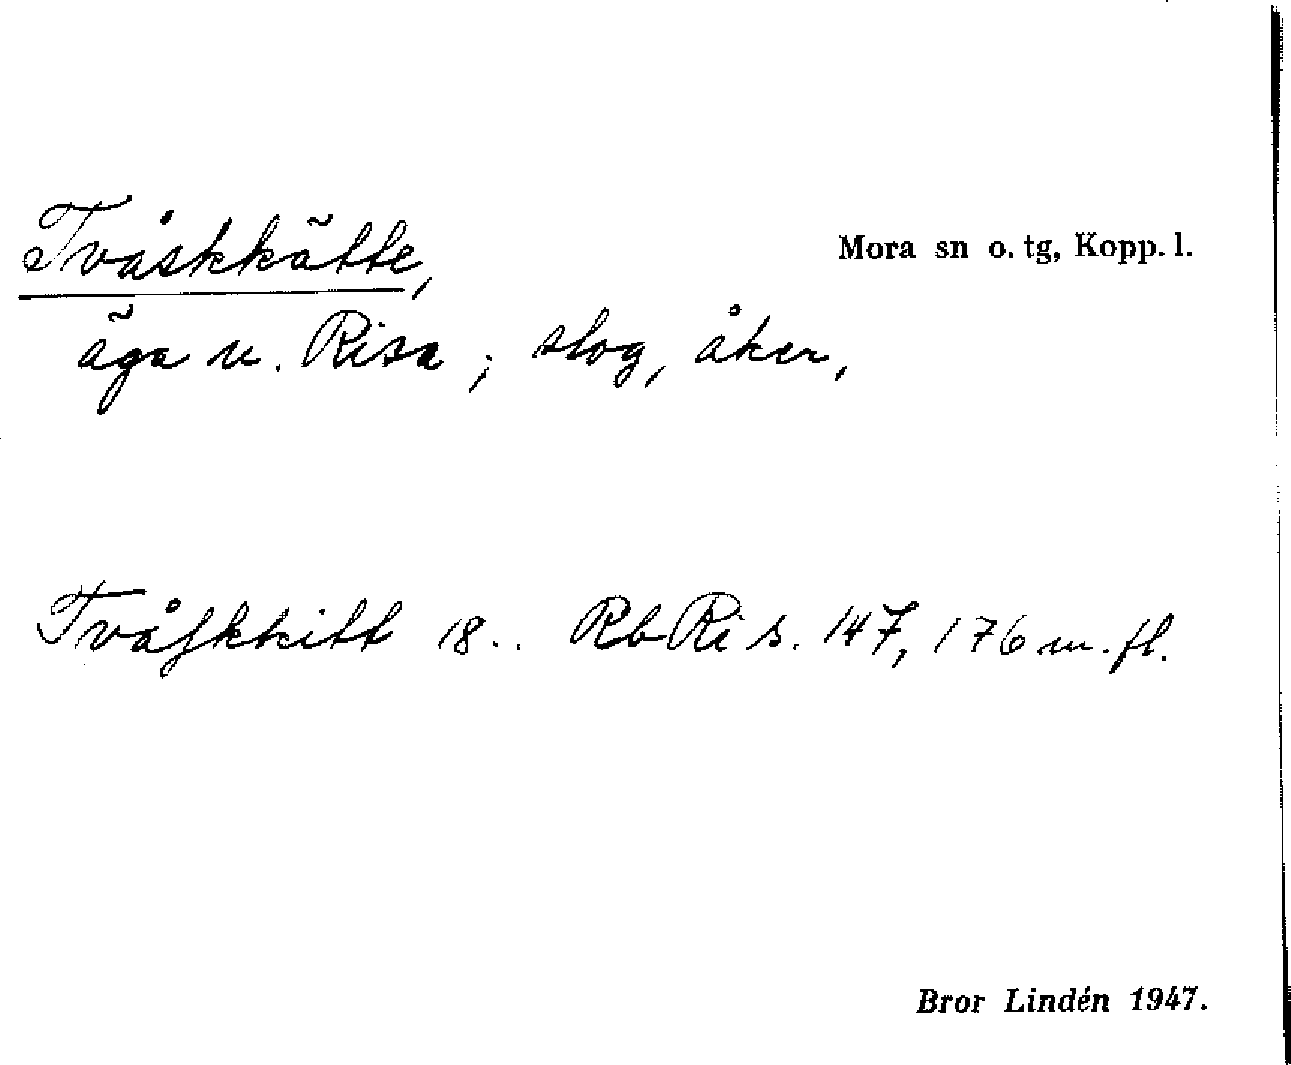 Tvåskkätte,
Mora sn o. tg, Kopp. l.
äga n. Risa; slog, åker,
Tvåſkkitt 18.. Rb Ri s. 147, 176 m. fl.
Bror Lindén 1947.